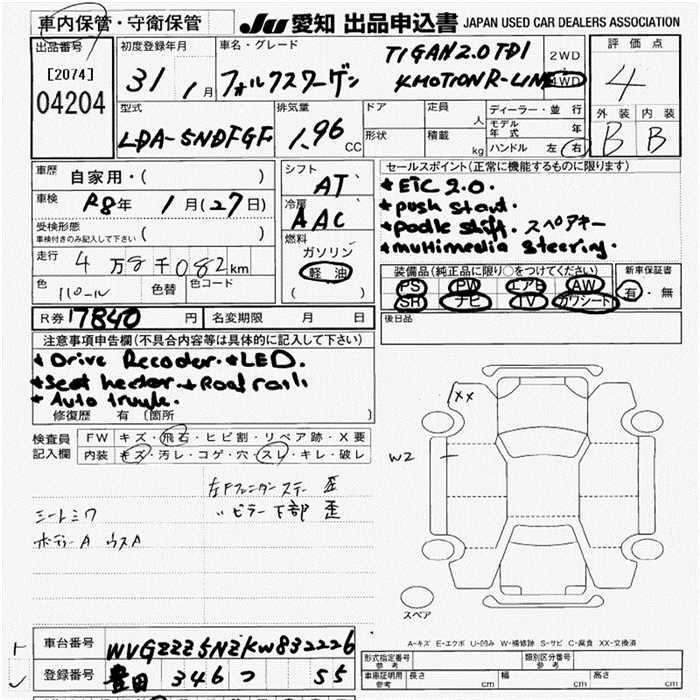 車内保管・守衛保管
JU 愛知 出品申込書 JAPAN USED CAR DEALERS ASSOCIATION
出品番号
[2074]
04204
初度登録年月
31 1月
車名・グレード
フォルクスワーゲン
TIGAN2.0TDI
4MOTIONR-LINE
2WD
4WD
評価点
4
外装 内装
B B
型式
LDA-5NDFGF
排気量
1.96 CC
ドア
形状
定員 人
積載 kg
ディーラー・並行
モデル年式 年
ハンドル 左 右
車歴
自家用・( )
車検 R8年 1月(27日)
受検形態
車検付きのみ記入して下さい ( )
走行 4万8千082km
色 パール 色替 色コード
シフト
AT
冷房
AAC
燃料
ガソリン
軽油
( )
セールスポイント(正常に機能するものに限ります)
* ETC 2.0.
* push start.
* padle shift. スペアキー
* multimedia steering.
装備品(純正品に限り○をつけてください)
PS PW エアB AW
SR ナビ TV カワシート
新車保証書
有・無
R券 17840円 名変期限 月 日
後日品
注意事項申告欄(不具合内容等は具体的に記入して下さい)
* Drive Recoder. * LED.
* Seat heater * Roof rail
* Auto trunk.
修復歴 有 〔箇所 〕
検査員記入欄
FW キズ・飛石・ヒビ割・リペア跡・X要
内装 キズ・汚レ・コゲ・穴・スレ・キレ・破レ
左Fフェンダーステー 歪
〃 ピラー下部 歪
シートシワ
ボディーA ウスA
XX
W2
スペア
A-キズ E-エクボ U-凹み W-補修跡 S-サビ C-腐食 XX-交換済
車台番号 WVGZZZ5NZKW832226
登録番号 豊田 346 つ 55
型式指定番号 参考
類別区分番号 参考
車庫証明用 参考 長さ cm 幅 cm 高さ cm